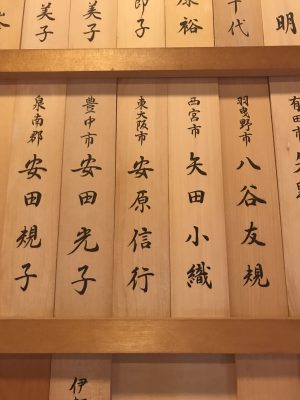 明
千代
裕
子
美子
美子
有田
羽曳野市 八谷友規
西宮市 矢田小織
東大阪市 安原信行
豊中市 安田光子
泉南郡 安田規子
伊